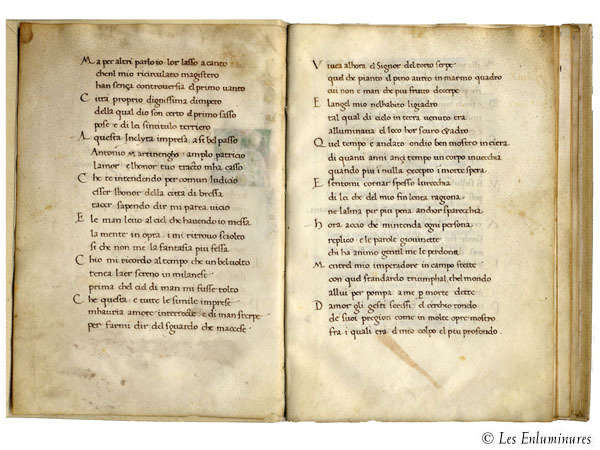 Ma per altri parlo io lor lasso a canto
chenl mio riciculato magistero
han senza controversia el primo vanto
Citta proprio dignissima dimpero
della qual dio son certo el primo sasso
pose e di lei sintitulo terriero
A questa inclyta impresa a si bel passo
Antonio Martinengho amplo patricio
lamor e lhonor tuo tracto mha casso
Che te intendendo per comun iudicio
esser lhonor della citta di bressa
tacer sapendo dir mi parea uicio
E le man leuo al ciel che hauendo io messa
la mente in opra i mi ritrouo sciolto
si che non me la fantasia piu fessa
Chio mi ricordo al tempo che un bel uolto
tenea laer sereno in milanese
prima chel ciel di man mi fusse tolto
Che questa e tutte le simile imprese
mhauria amore interrocte e di man
per farmi dir del sguardo che maccese
Viuea alhora el Signor del torto serpe
quel che pianto el pino aurto in marmo quadro
cui non e man che piu fruito decerpe
E langel mio nelhabito ligiadro
tal qual di cielo in terra uenuto era
alluminaua el loco hor scuro & adro
Quel tempo e andato ondio ben mostro in ciera
di quanti anni anci tempo un corpo inuecchia
quando piu i nulla excepto i morte spera
E sentomi tornar spesso in urecchia
di lei che del mio fin lenta ragiona
ne lalma per piu pena anchor sparecchia
hora accio che mintenda ogni persona
replico e le parole giouinette
chi ha animo gentil me le perdona
Mentrel mio imperadore in campo stette
con quel standardo triumphal chel mondo
allui per pompa a me p morte dette
Damor gli gesti scrissi el cerchio tondo
de suoi pregion come in molte opre mostro
fra i quali era el mio colpo el piu profondo.
© Les Enluminures